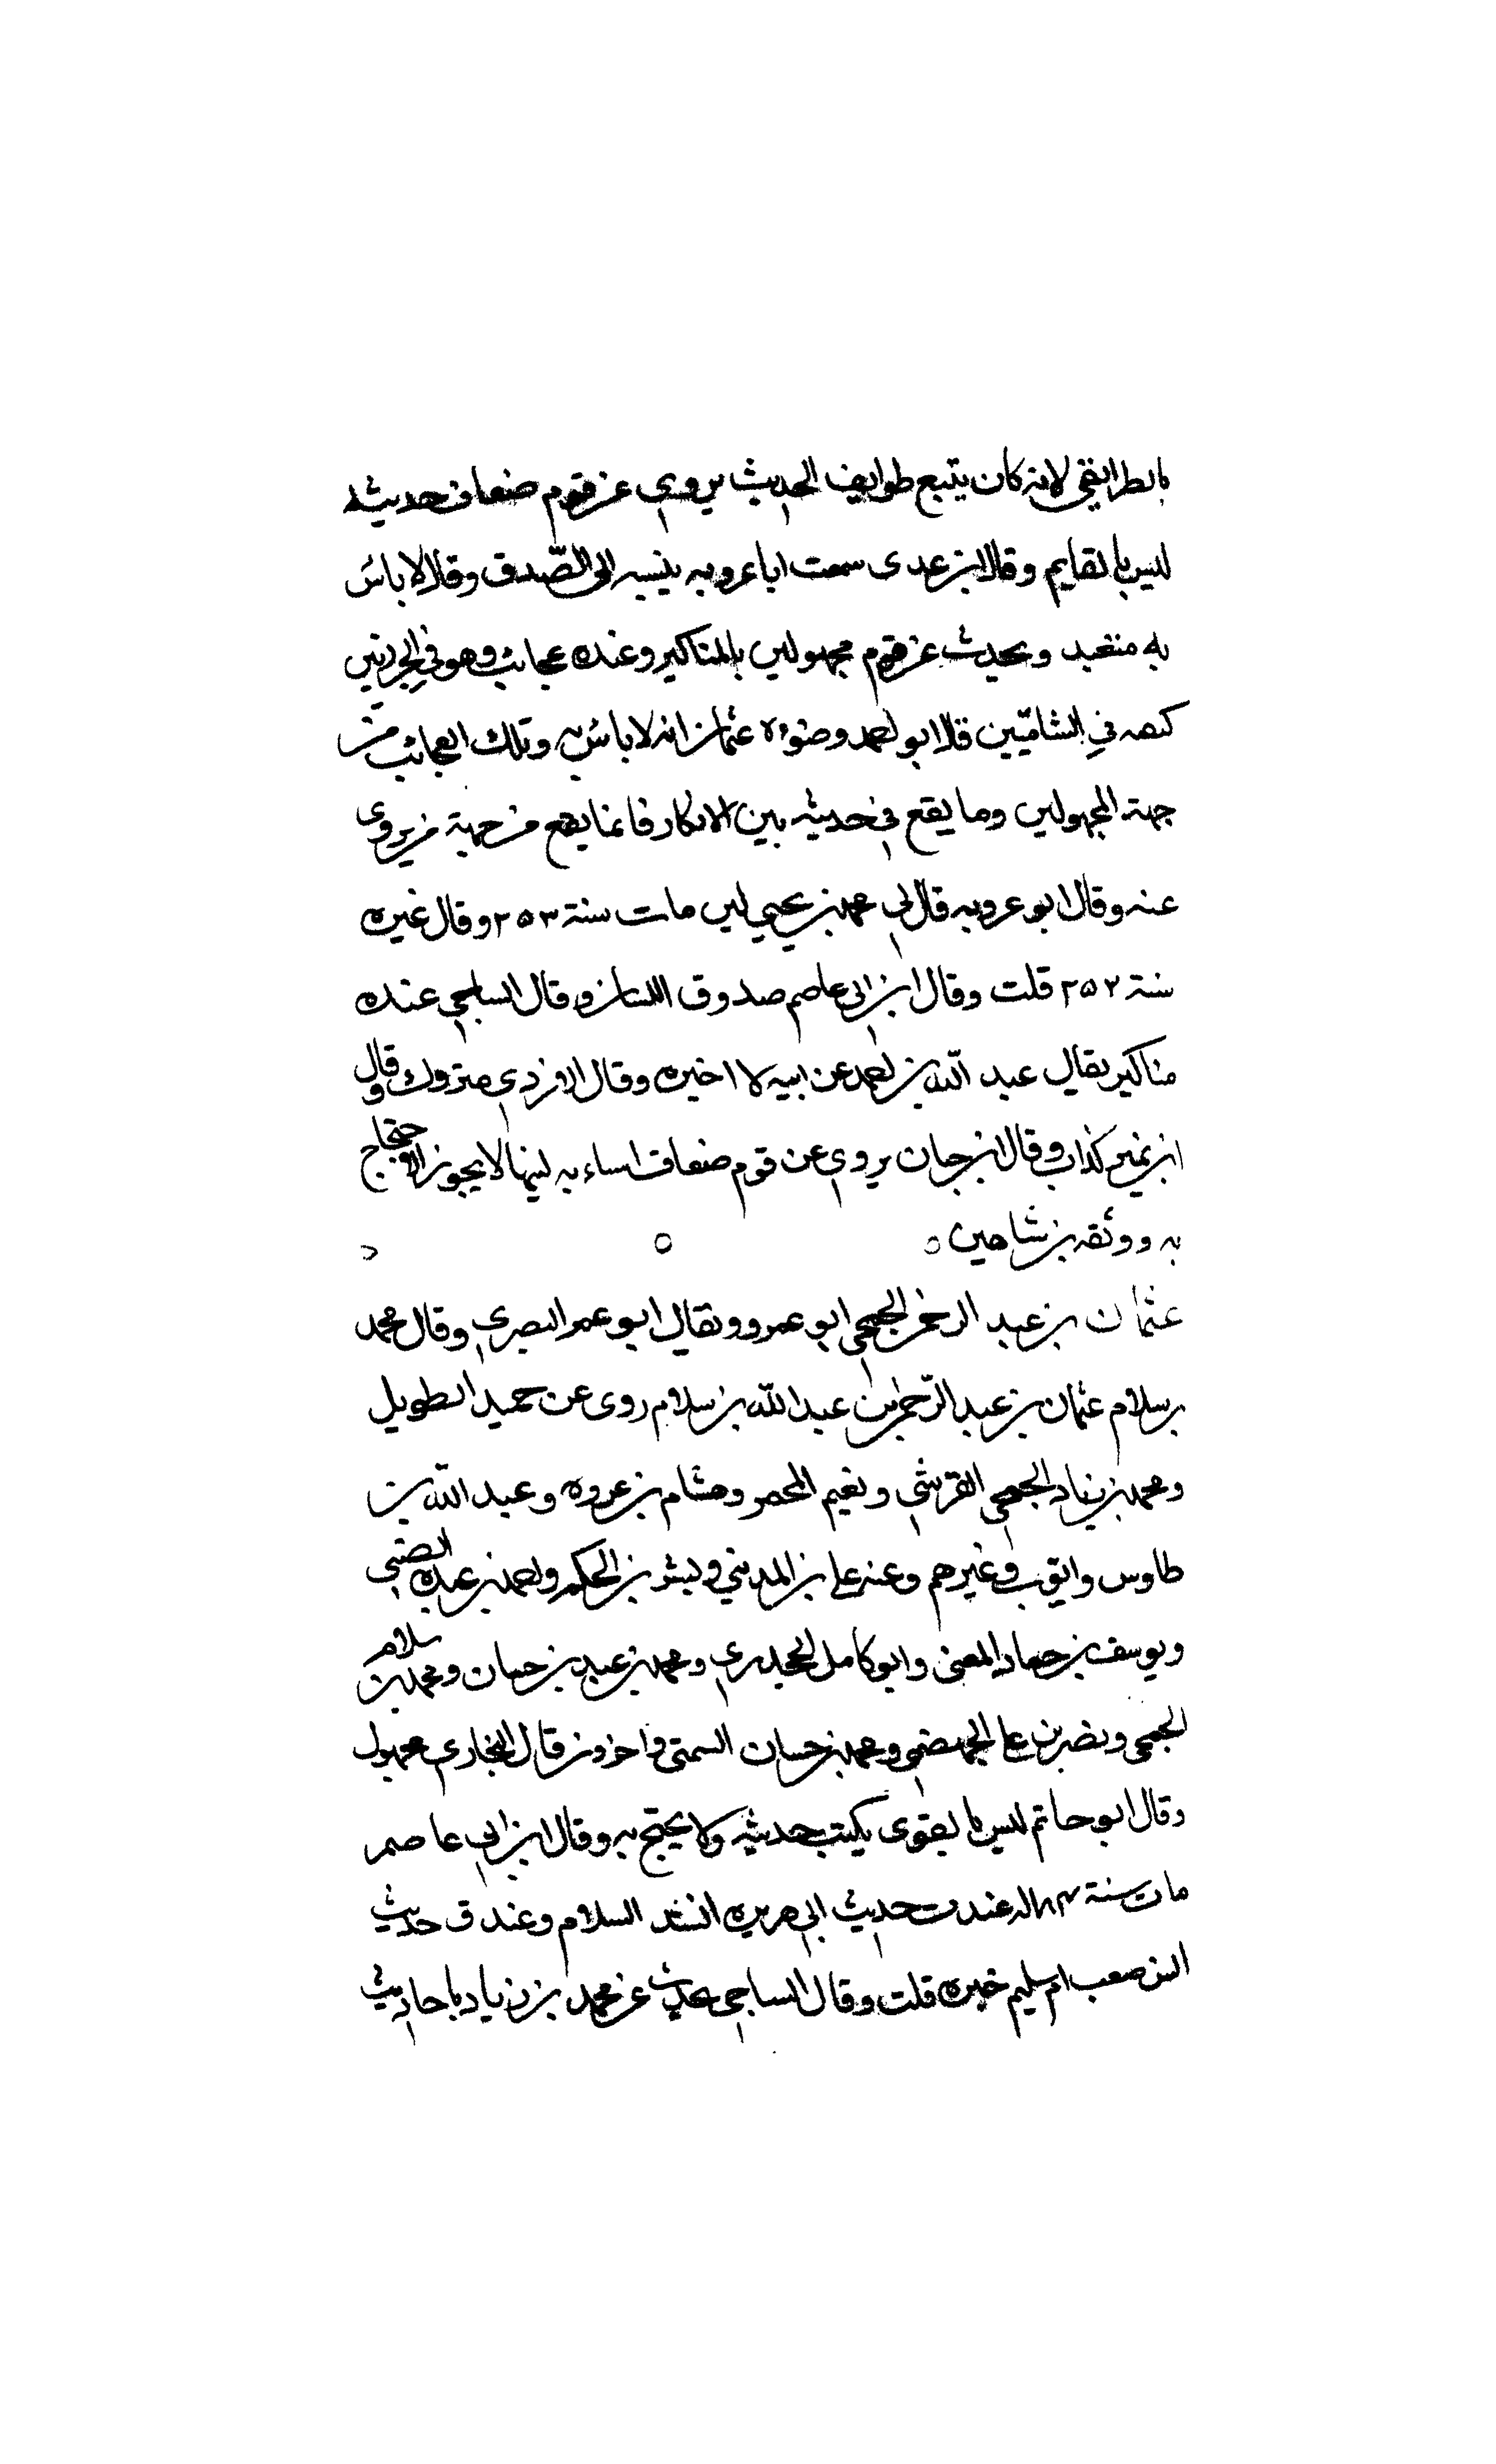 بالطرايفي لانه كان يتبع طوايف الحديث يروي عن قوم ضعاف حديثه
ليس بالقايم وقال ابن عدى سمعت ابا عروبه ينسبه الى الصّدق وقال لا باس
به متعبد ويحدث عن قوم مجهولين بالمناكير وعنده عجائب وهو في الجزريين
كبقيه في الشاميّين قال ابو احمد وصوره عثمان انه لا باس به وتلك العجائب من
جهة المجهولين وما يقع في حديثه بين الانكار فانما يقع من جهة من يروى
عنه وقال ابو عروبه قال لي محمد بن يحيي ليس مات سنة ٢٥٣ وقال غيره
سنة ٢٥٢ قلت وقال ابن ابي عاصم صدوق اللسان وقال الساجي عنده
مناكير يقال عبد الله بن احمد عن ابيه لا اخيره وقال الازدي متروك وقال
ابن نمير كذاب وقال ابن حبان يروي عن قوم ضعاف اساء به لينها لا يجوز الاحتجاج
به ووثقه بن شاهين
عثمان بن عبد الرحمن الجمحي ابو عمرو ويقال ابو عمر البصري وقال محمد
بن سلام عثمان بن عبد الرّحمن بن عبد الله بن سلام روى عن حميد الطويل
ومحمد بن زياد الجمحي القرشي ونعيم المجمر وهشام بن عروه وعبد الله بن
طاوس وايّوب وغيرهم وعنه علي بن المديني وبشر بن الحكم واحمد بن عبده الضبي
ويوسف بن حماد المعنى وابو كامل الجحدري ومحمد بن عبيد بن حسان ومحمد بن سلام
الجمحي ونصر بن علي الجهضمي ومحمد بن حسان السمتى واخرون قال البخاري مجهول
وقال ابو حاتم ليس بالقوى يكتب حديثه ولا يحتج به وقال ابن ابي عاصم
مات سنة ١٨٤ له عند ت حديث ابي هريره افشاء السلام وعند ق حديث
انس صعب ام سليم خبره قلت وقال الساجي يحدث عن محمد بن زياد باحاديث